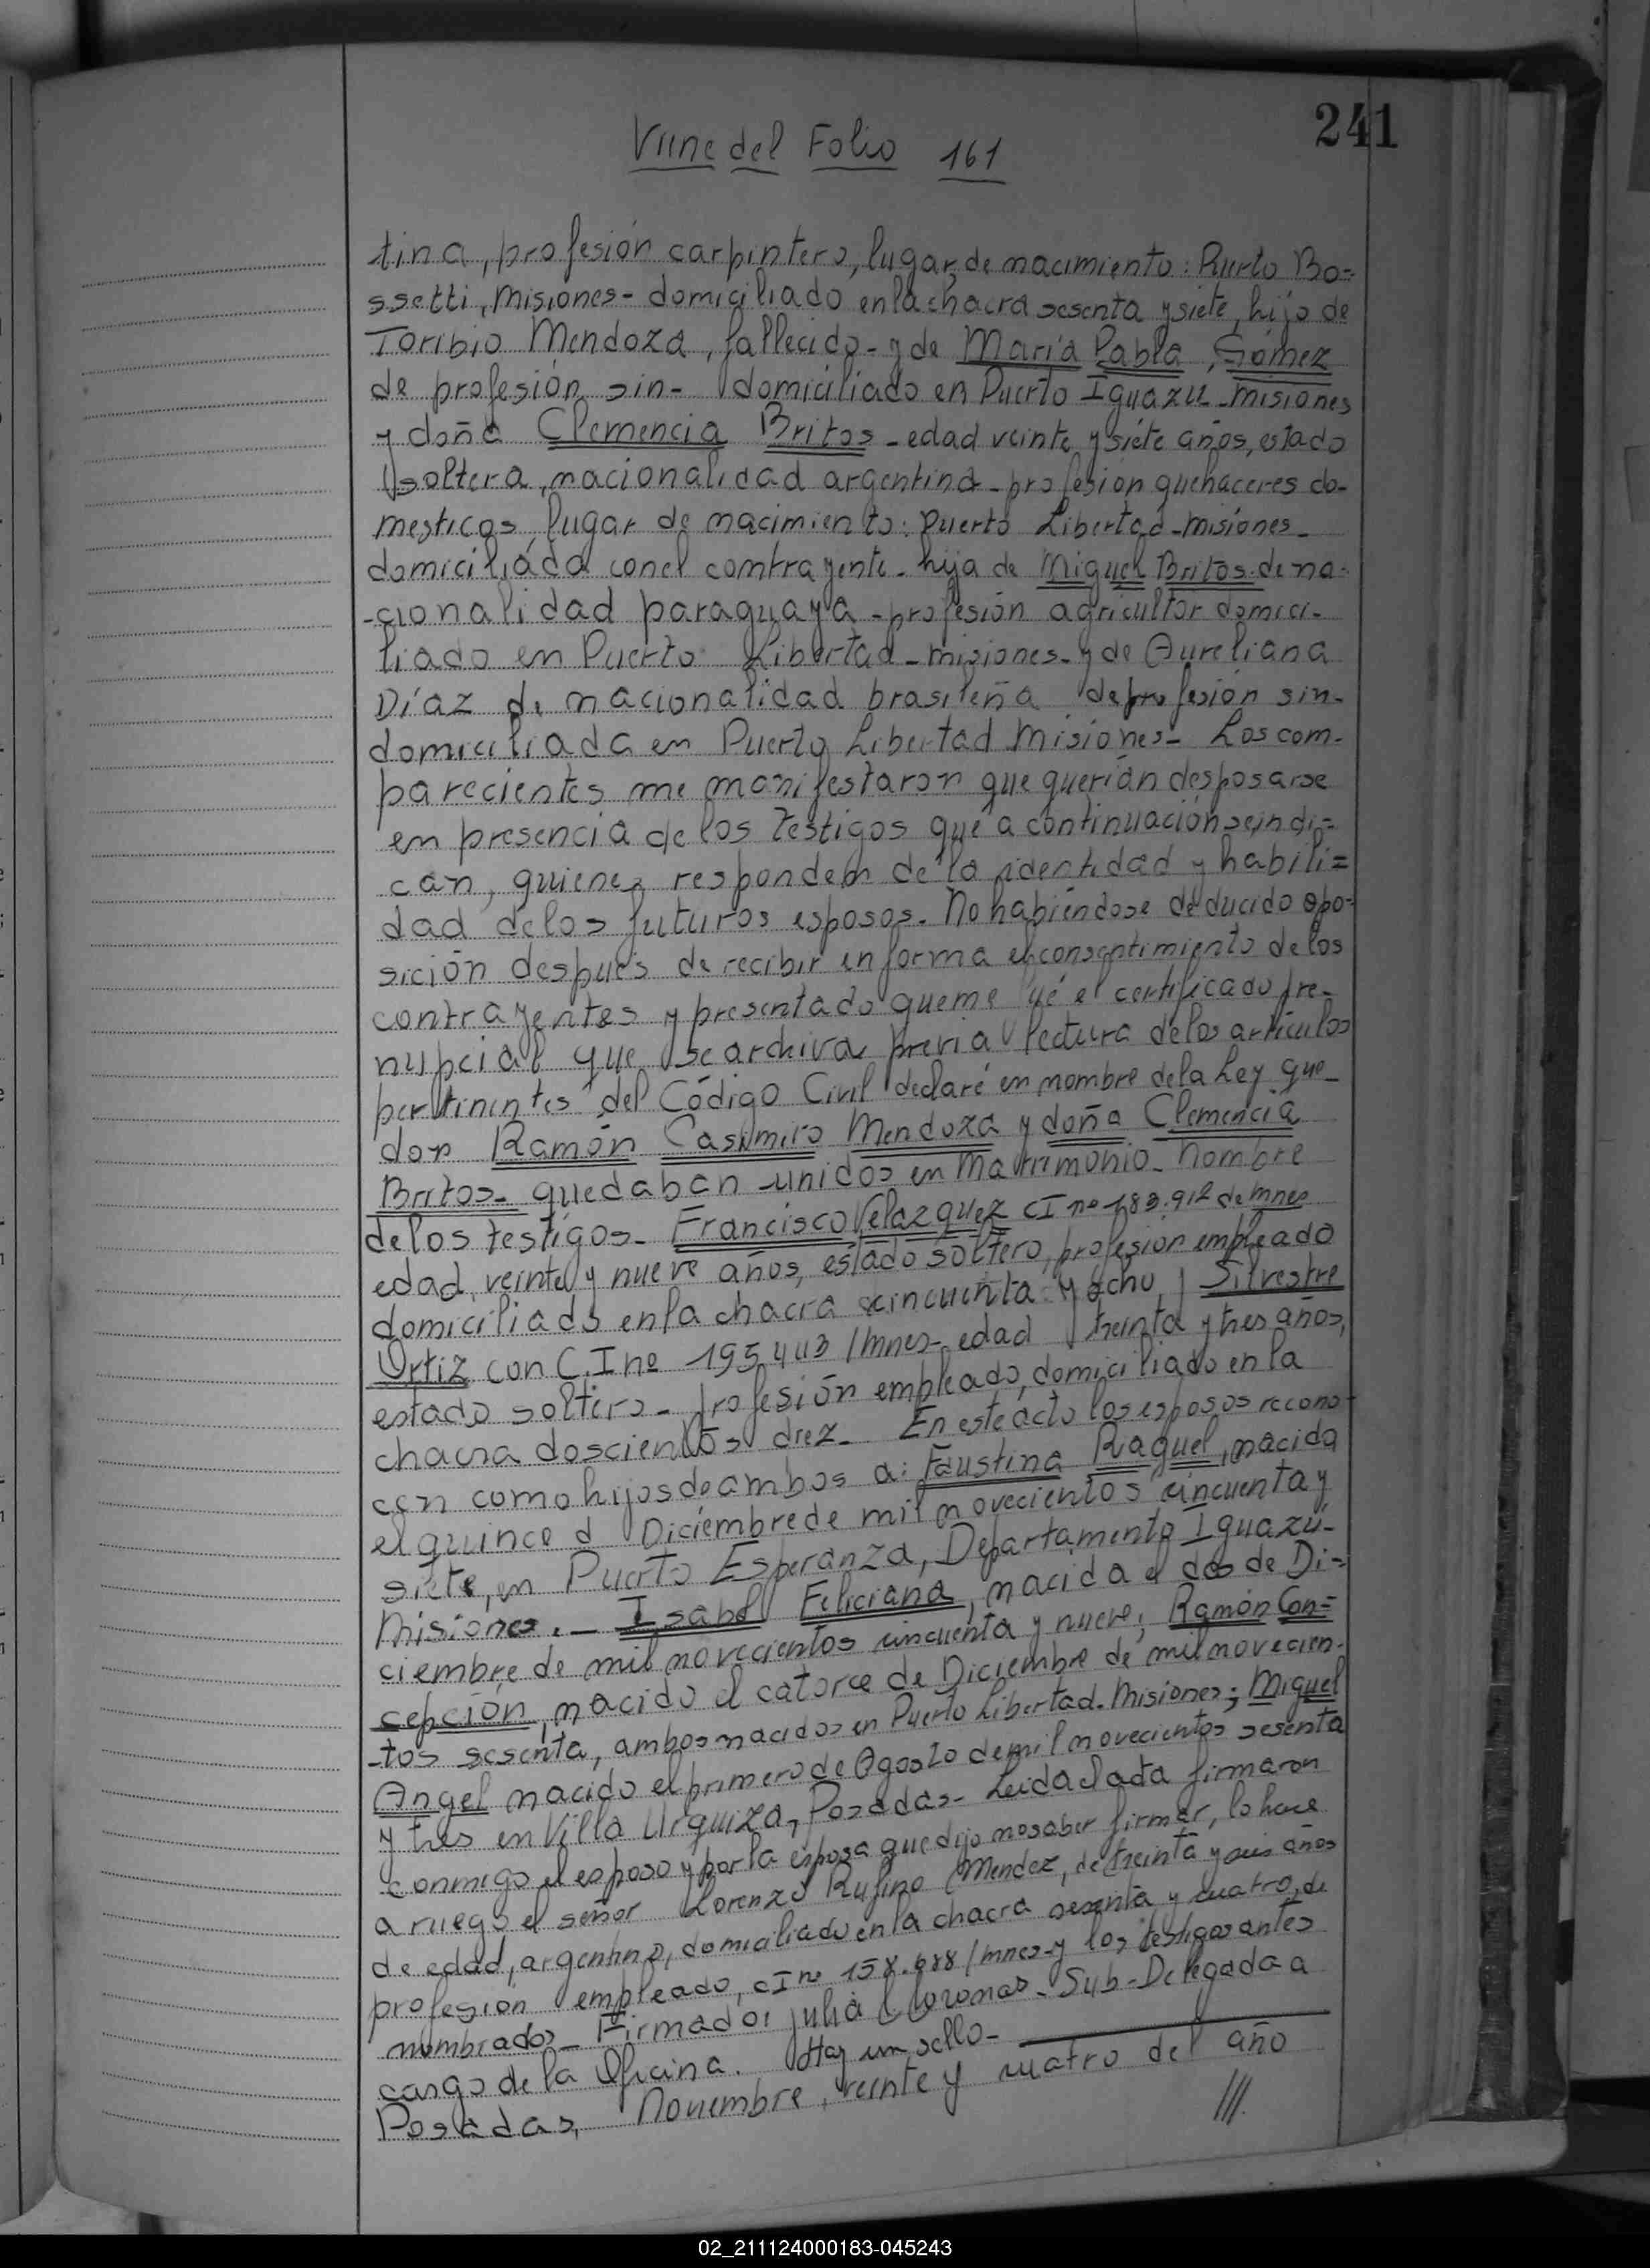 241
Viene del Folio 161
tina, profesión carpintero, lugar de nacimiento: Puerto Bo=
ssetti, Misiones- domiciliado en la chacra sesenta y siete, hijo de
Toribio Mendoza, fallecido- y de María Pabla Gómez
de profesión sin- domiciliado en Puerto Iguazu-misiones
y doña Clemencia Britos- edad veinte y siete años, estado
soltera, nacionalidad argentina- profesión quehaceres do-
mesticos, lugar de nacimiento: Puerto Libertad-misiones-
domiciliáda con el contrayente- hija de Miguel Britos- de na-
-cionalidad paraguaya- profesión agricultor domici-
liado en Puerto Libertad-misiones- y de Aureliana
Díaz de nacionalidad brasileña de profesión sin-
domiciliada en Puerto Libertad Misiones- Los com-
parecientes me manifestaron que querían desposarse
en presencia de los testigos que a continuación se indi=
can, quienes responden de la identidad y habili=
dad de los futuros esposos. No habiéndose deducido opo-
sición después de recibir en forma el consentimiento de los
contrayentes y presentado que me fué el certificado pre-
nupcial que se archiva previa lectura de los artículos
pertinentes del Código Civil declaré en nombre de la Ley que-
don Ramón Casimiro Mendoza y doña Clemencia
Britos- quedaban unidos en Matrimonio- Nombre
de los testigos- Francisco Velazquez CI nº 183.912 de Mnes
edad veinte y nueve años, estado soltero, profesión empleado
domiciliado en la chacra cincuenta y ocho, y Silvestre
Ortiz con C.I nº 195443/Mnes- edad treinta y tres años,
estado soltero- profesión empleado, domiciliado en la
chacra doscientos diez- En este acto los esposos recono-
cen como hijos de ambos a: Faustina Raquel, nacida
el quince d Diciembre de mil novecientos cincuenta y
siete, en Puerto Esperanza, Departamento Iguazú-
Misiones.- Isabel Feliciana, nacida el dos de Di=
ciembre de mil novecientos cincuenta y nueve; Ramón Con=
cepción, nacido el catorce de Diciembre de mil novecien-
-tos sesenta, ambos nacidos en Puerto Libertad. Misiones; Miguel
Angel nacido el primero de Agosto de mil novecientos sesenta
y tres en Villa Urquiza, Posadas- Leida el acta firmaron
conmigo el esposo y por la esposa que dijo no saber firmar, lo hace
a ruego el señor Lorenzo Rufino Mendez, de treinta y seis años
de edad, argentino, domiciliado en la chacra sesenta y cuatro, de
profesión empleado, CI nº 158.688/mnes- y los testigos antes
nombrados- Firmado: Julia C Coromas- Sub-Delegada a
cargo de la Oficina. Hay un sello-
Posadas, Noviembre, veinte y cuatro del año
///.
02_211124000183-045243